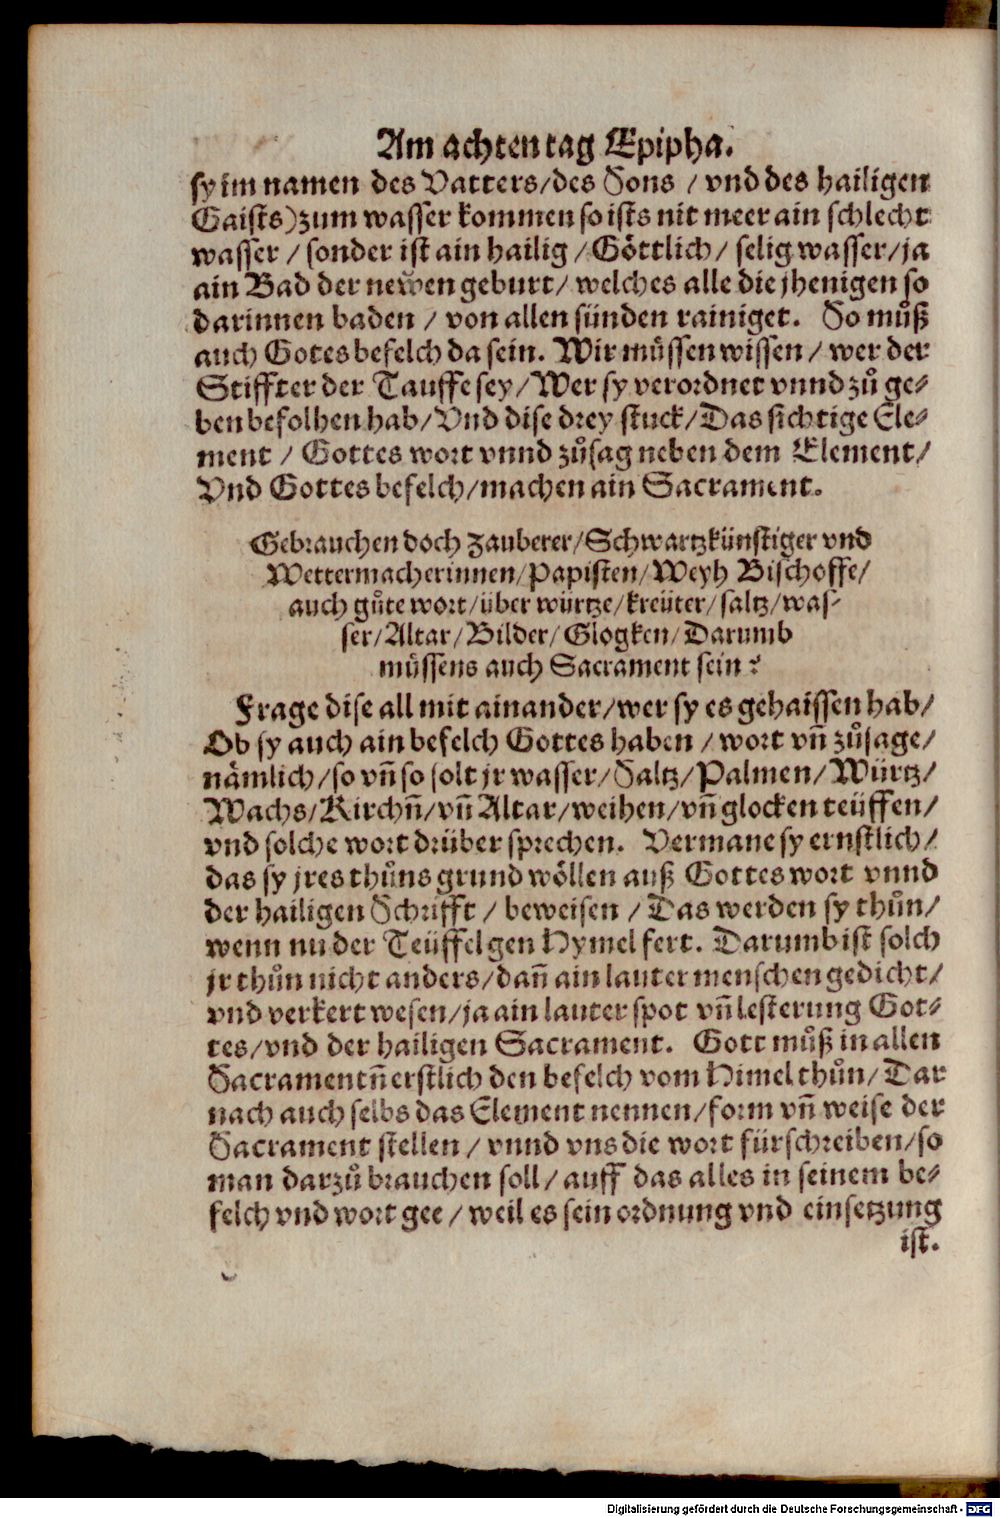 Am achten tag Epipha.
sy im namen des Vatters/des Sons / vnd des hailigen
Gaists) zum wasser kommen so ists nit meer ain schlecht
wasser / sonder ist ain hailig / Göttlich / selig wasser/ja
ain Bad der newen geburt/ welches alle die jhenigen so
darinnen baden / von allen sünden rainiget. So muͦß
auch Gotes befelch da sein. Wir müssen wissen / wer der
Stiffter der Tauffe sey/Wer sy verordnet vnnd zuͦ ge-
ben befolhen hab/Vnd dise drey stuck/Das sichtige Ele-
ment / Gottes wort vnnd zuͦsag neben dem Element/
Vnd Gottes befelch/machen ain Sacrament.
Gebrauchen doch Zauberer/Schwartzkünstiger vnd
Wettermacherinnen/Papisten/Weyh Bischoffe/
auch guͦte wort/über würtze/kreüter/saltz/was-
ser/Altar/Bilder/Glogken/Darumb
müssens auch Sacrament sein?
Frage dise all mit ainander/wer sy es gehaissen hab/
Ob sy auch ain befelch Gottes haben / wort vñ zuͦsage/
nämlich/so vñ so solt jr wasser/Saltz/Palmen/Würtz/
Wachs/Kirchñ/vñ Altar/weihen/vñ glocken teüffen/
vnd solche wort drüber sprechen. Vermane sy ernstlich/
das sy jres thuͦns grund wöllen auß Gottes wort vnnd
der hailigen Schrifft / beweisen / Das werden sy thuͦn/
wenn nu der Teüffel gen Hymel fert. Darumb ist solch
jr thuͦn nicht anders/dañ ain lauter menschen gedicht/
vnd verkert wesen/ja ain lauter spot vñ lesterung Got-
tes/vnd der hailigen Sacrament. Gott muͦß in allen
Sacramentñ erstlich den befelch vom Himel thuͦn/Dar
nach auch selbs das Element nennen/form vñ weise der
Sacrament stellen / vnnd vns die wort fürschreiben/so
man darzuͦ brauchen soll/ auff das alles in seinem be-
felch vnd wort gee / weil es sein ordnung vnd einsetzung
ist.
Digitalisierung gefördert durch die Deutsche Forschungsgemeinschaft - DFG